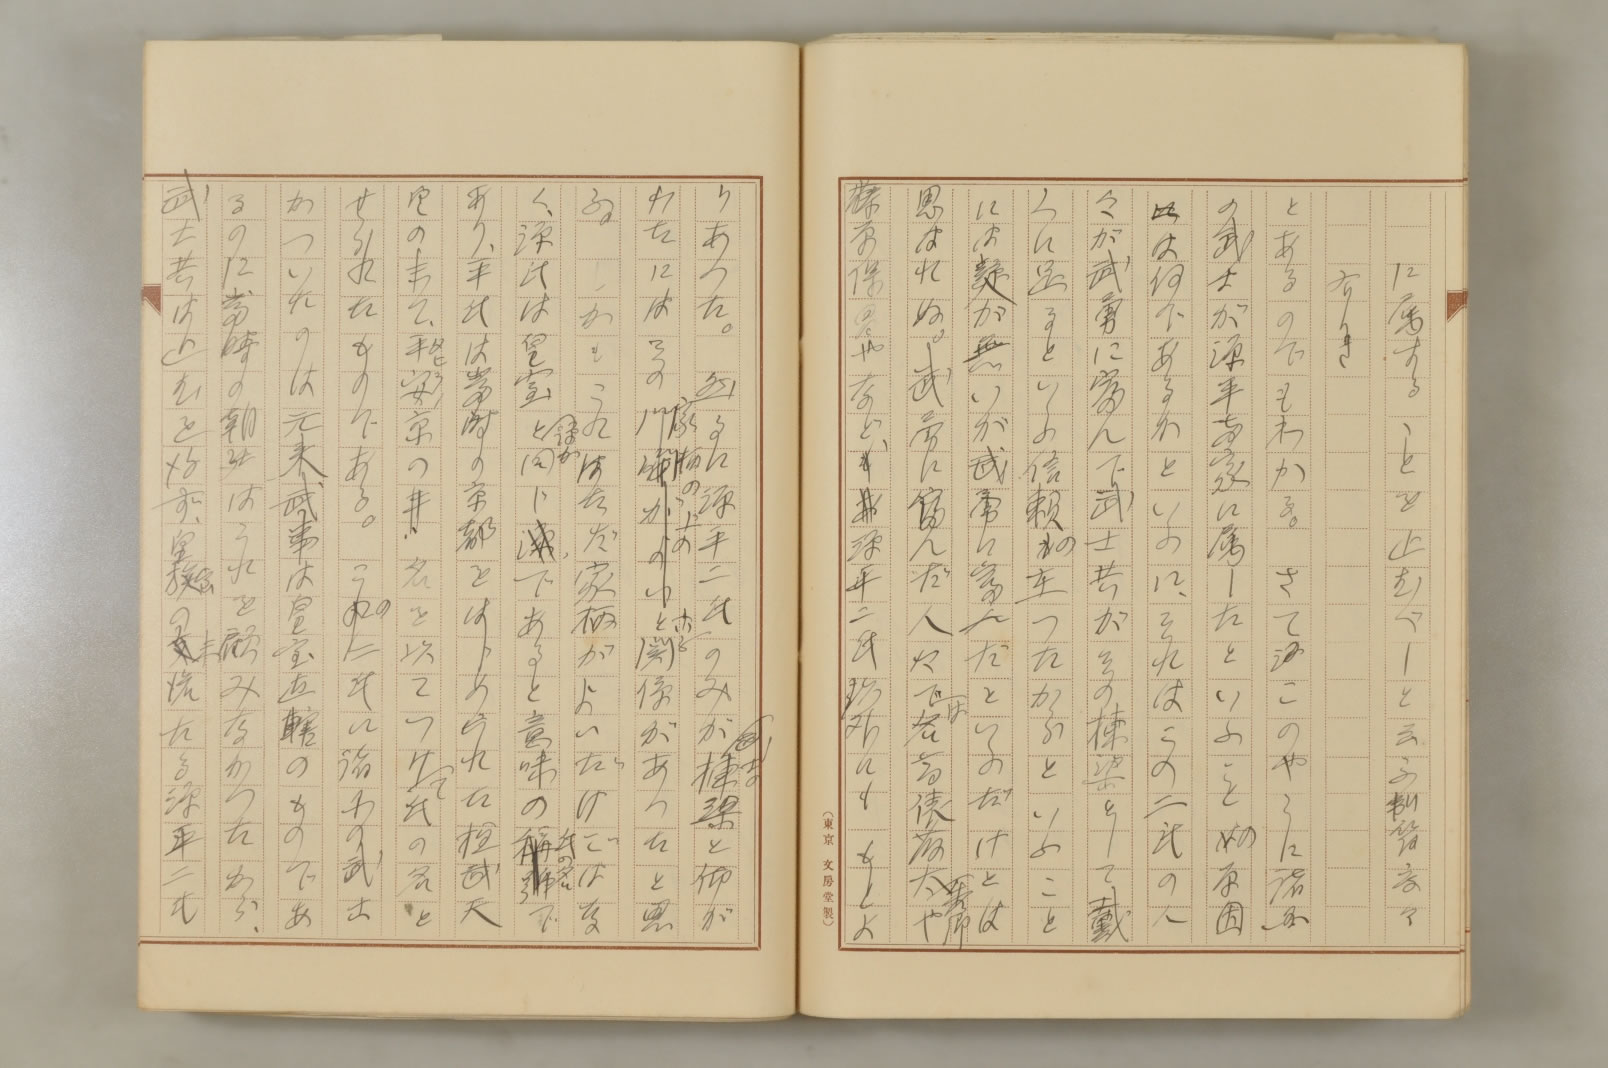 に属することを止むべしと云ふ制符度々
有りき
とあるのでもわかる。さてこのやうに諸国
の武士が源平両家に属したといふことの原因
は何であるかといふに、それはこの二氏の人
々が武勇に富んで武士共がその棟梁として戴
くに足るといふ信頼の在つたからといふこと
には疑が無いが武勇に富んだといふだけとは
思はれぬ。武勇に富んだ人々では俵藤太や
藤原保昌やなども源平二氏以外にももとよ
りあつた。然るに源平二氏のみが武士の棟梁と仰が
れたには家柄のよいと関係があつたと思
ふ。しかもこれはただ家柄がよいだけではな
く、源氏は皇室と源が同じであると意味の氏の名で
あり、平氏は当時の京都をはじめられた桓武天
皇の末で、平安京の名を以てつけて氏の名と
せられたものである。この二氏に諸州の武士
がついたのは元来武事は皇室直轄のものであ
るのに当時の朝廷はこれを顧みなかつたから、
武士共は止むを得ず、皇族の末裔たる源平二氏
(東京 文房堂製)